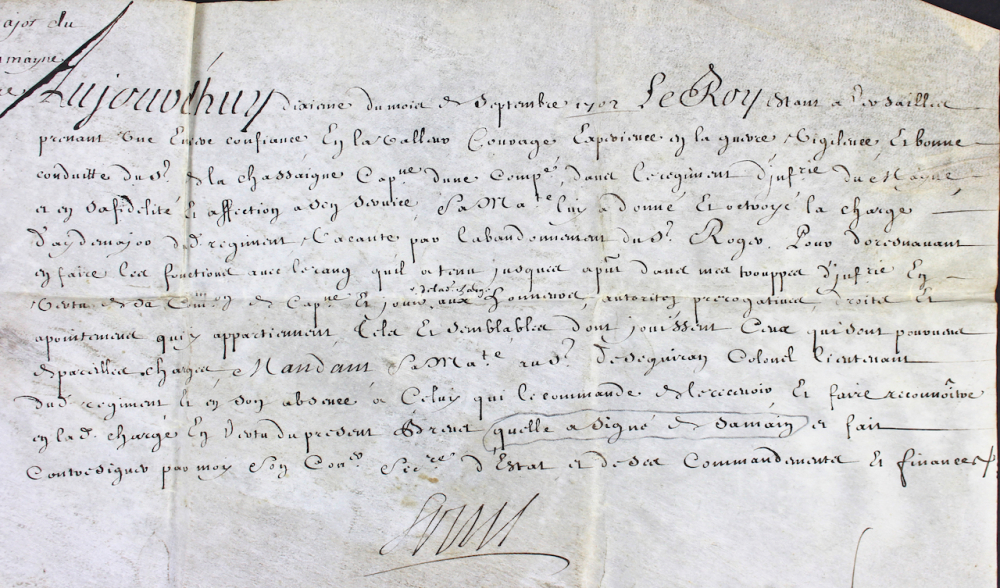 ajor du
mayne
Aujourdhuy dixieme du mois de Septembre 1702 Le Roy estant a Versailles
prenant Une Entiere confiance En la Valleur Courage Experience en la guerre Vigilence Et bonne
conduitte du Sr. de la Chassaigne Capne dune Compe, dans le regiment d'infrie du Mayne,
et en sa fidelité Et affection a son service, Sa Mate. luy a donné Et octroyé la charge
d'aydemajor dud. regiment Vacante par labandonnement du Sr. Roger. Pour doresnavant
en faire les fonctions avec le rang qu'il a tenu jusques apnt dans mes trouppes d'infrie En
Vertu de sa Comon de Capne Et jouir de lad. charge aux honneurs, autoritez prerogatives droits Et
apointemens quy appartiennent Tels Et Semblables dont jouissent Ceux qui sont pourveus
de pareilles charges Mandant Sa Mate. au Sr. de Seguiran Colonel lieutenant
dud. regiment Et en son absence a Celuy qui le commande de le recevoir Et faire reconnoitre
en lad. charge En Vertu du present Brevet quelle a signé de sa main et fait
Contresigner par moy Son Coner Secre. d'Estat et de ses Commandements Et finances
Louis